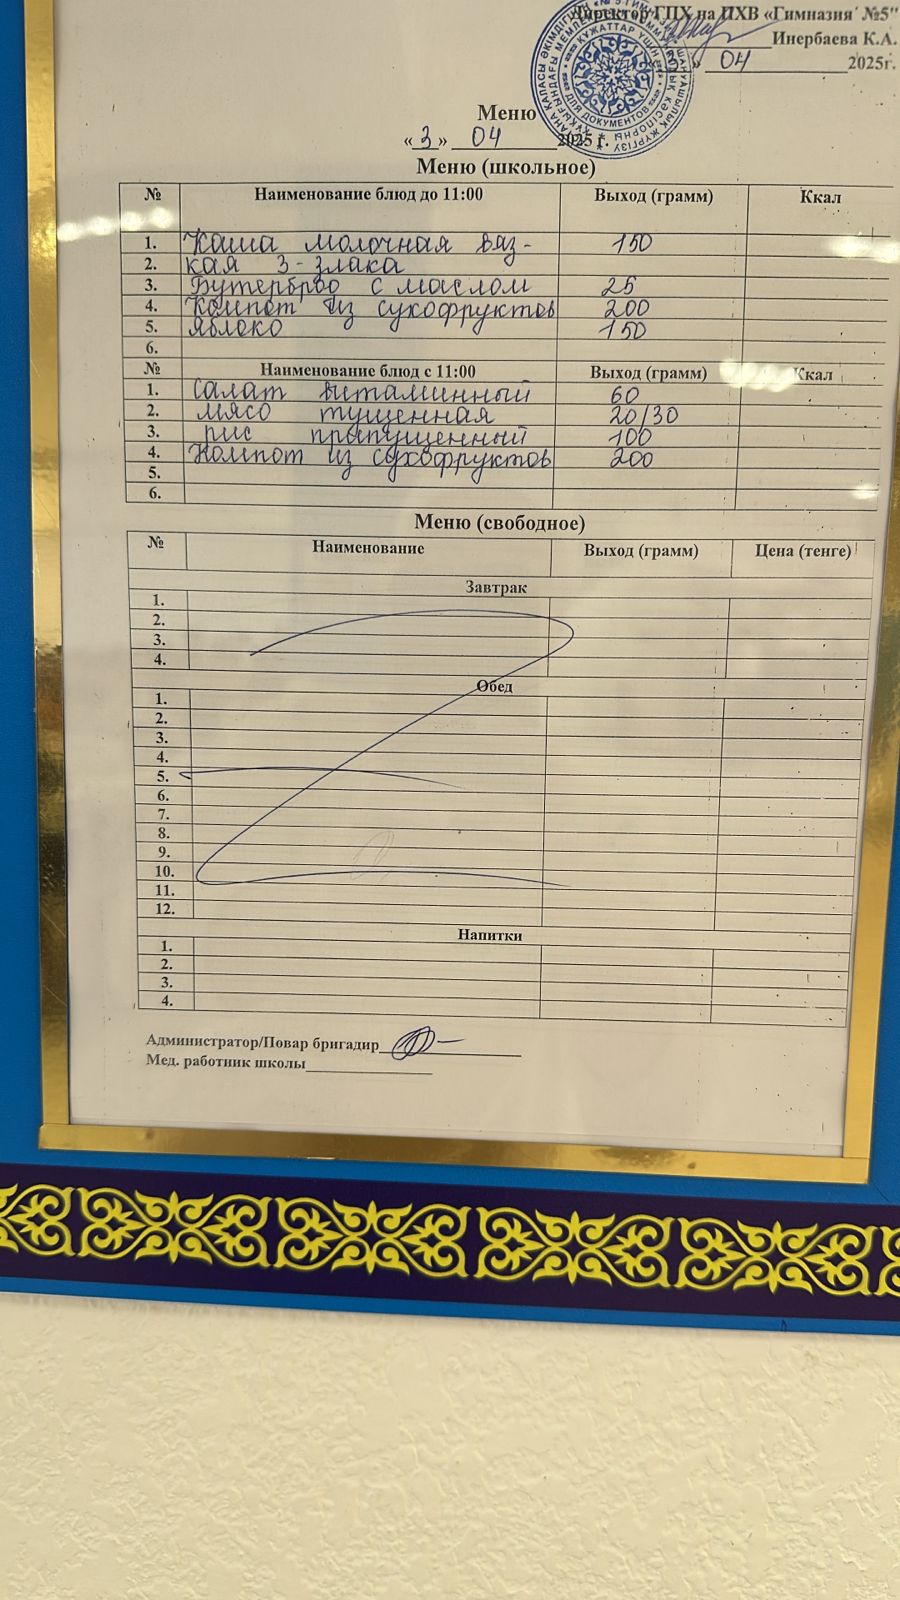 Директор ГПХ на ПХВ «Гимназия №5"
Инербаева К.А.
» 04 2025г.
Меню
«3» 04 2025 г.
Меню (школьное)
№ Наименование блюд до 11:00 Выход (грамм) Ккал
1. Каша молочная вяз- 150
2. кая 3-злака
3. Бутерброд с маслом 25
4. Компот из сухофруктов 200
5. яблоко 150
6.
№ Наименование блюд с 11:00 Выход (грамм) Ккал
1. салат витаминный 60
2. мясо тущенная 20/30
3. рис прыпущенный 100
4. Компот из сухофруктов 200
5.
6.
Меню (свободное)
№ Наименование Выход (грамм) Цена (тенге)
Завтрак
1.
2.
3.
4.
Обед
1.
2.
3.
4.
5.
6.
7.
8.
9.
10.
11.
12.
Напитки
1.
2.
3.
4.
Администратор/Повар бригадир
Мед. работник школы